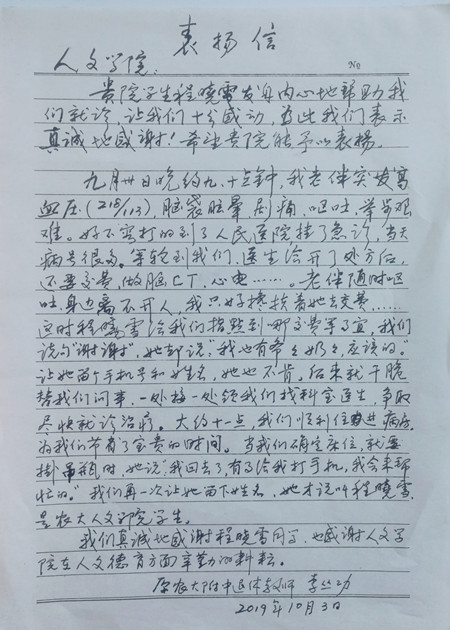 表扬信
№
人文学院:
贵院学生程晓雪发自内心地帮助我
们就诊，让我们十分感动，为此我们表示
真诚地感谢！希望贵院能予以表揚。
九月卅日晚约九、十点钟，我老伴突发高
血压(218/113)，脑袋胀晕，剧痛，呕吐，举步艰
难。好不容打的到了人民医院挂了急诊，当天
病号很多。等轮到我们，医生给开了处方后，
还要交费，做脑CT，心电……。老伴随时呕
吐，身边离不开人，我只好搀扶着她去交费……
这时程晓雪给我们指点到哪交费等事宜，我们
说句"谢谢"，她却说"我也有爷々奶々，应该的。"
让她留个手机号和姓名，她也不肯。后来就干脆
替我们问事，一处接一处领我们找科室医生，争取
尽快就诊治疗。大约十一点，我们顺利住进病房，
为我们节省了宝贵的时间。当我们确定床位，就要
掛吊瓶时，她说"我回去了有事给我打手机，我会来帮
忙的。"我们再一次让她留下姓名，她才说叫程晓雪
是农大人文学院学生。
我们真诚地感谢程晓雪同学，也感谢人文学
院在人文德育方面辛勤的耕耘。
原农大附中退休教师 李
2019年10月3日